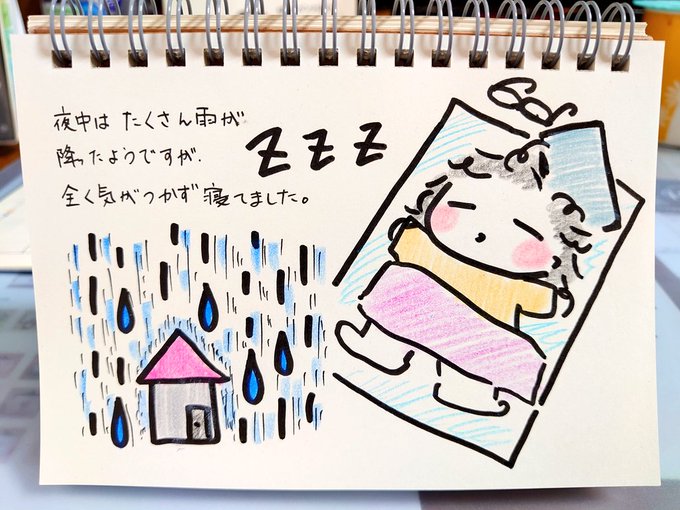 夜中は たくさん雨が
降ったようですが、
全く気がつかず寝てました。
ZZZ